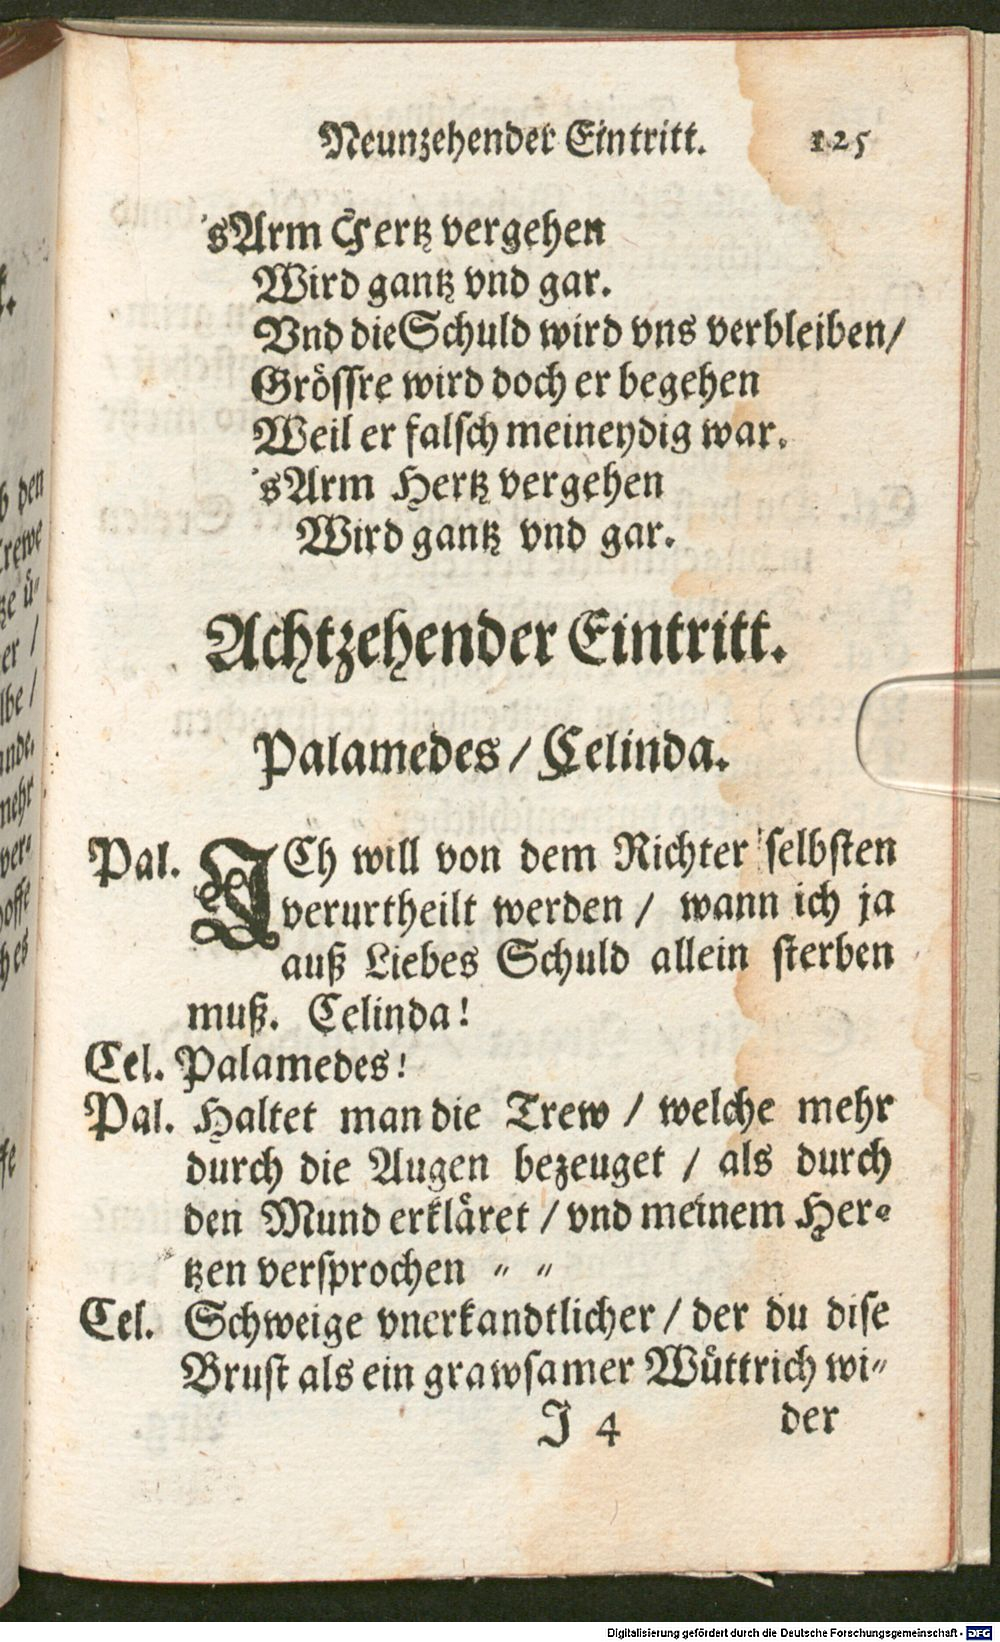 Neunzehender Eintritt. 125
'sArm Hertz vergehen
Wird gantz vnd gar.
Vnd die Schuld wird vns verbleiben/
Grössre wird doch er begehen
Weil er falsch meineydig war.
'sArm Hertz vergehen
Wird gantz vnd gar.
Achtzehender Eintritt.
Palamedes / Celinda.
Pal. ICh will von dem Richter selbsten
verurtheilt werden / wann ich ja
auß Liebes Schuld allein sterben
muß. Celinda!
Cel. Palamedes!
Pal. Haltet man die Trew / welche mehr
durch die Augen bezeuget / als durch
den Mund erkläret / vnd meinem Her-
tzen versprochen " "
Cel. Schweige vnerkandtlicher / der du dise
Brust als ein grawsamer Wüttrich wi-
J 4 der
Digitalisierung gefördert durch die Deutsche Forschungsgemeinschaft - DFG